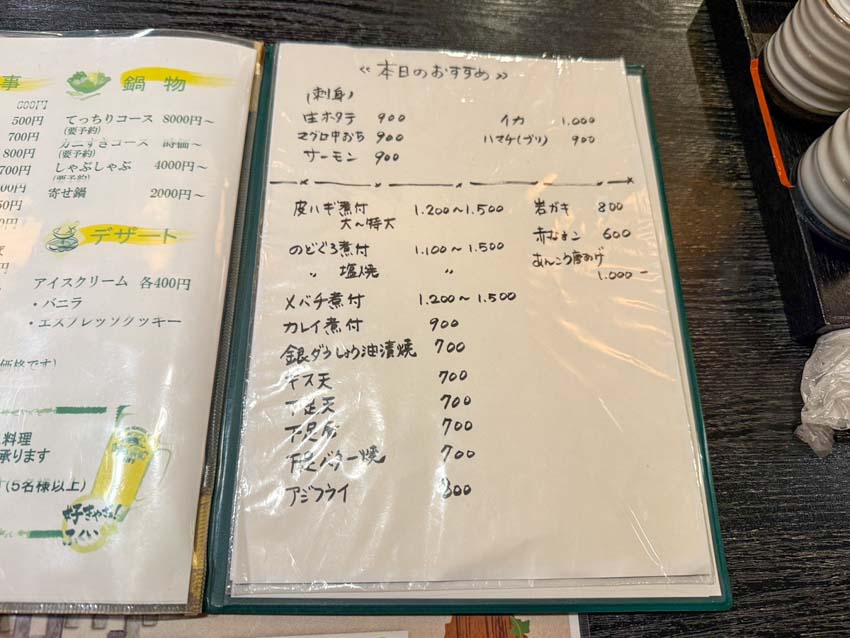 事
鍋物
800円
500円
てっちりコース 8000円～
(要予約)
700円
カニすきコース 時価～
(要予約)
800円
しゃぶしゃぶ 4000円～
(要予約)
700円
寄せ鍋 2000円～
デザート
アイスクリーム 各400円
・バニラ
・エスプレッソクッキー
価格です)
料理
承ります
(5名様以上)
好きやねん!
ふくい
≪本日のおすすめ≫
(刺身)
生ホタテ 900
イカ 1.000
マグロ中おち 900
ハマチ(ブリ) 900
サーモン 900
皮ハギ煮付 1.200～1.500
大～特大
岩ガキ 800
赤なまこ 600
のどぐろ煮付 1.100～1.500
あんこう唐あげ
1.000-
〃 塩焼 〃
メバチ煮付 1.200～1.500
カレイ煮付 900
銀ダラしょう油漬焼 700
キス天 700
下足天 700
下足 700
下足バター焼 700
アジフライ 800